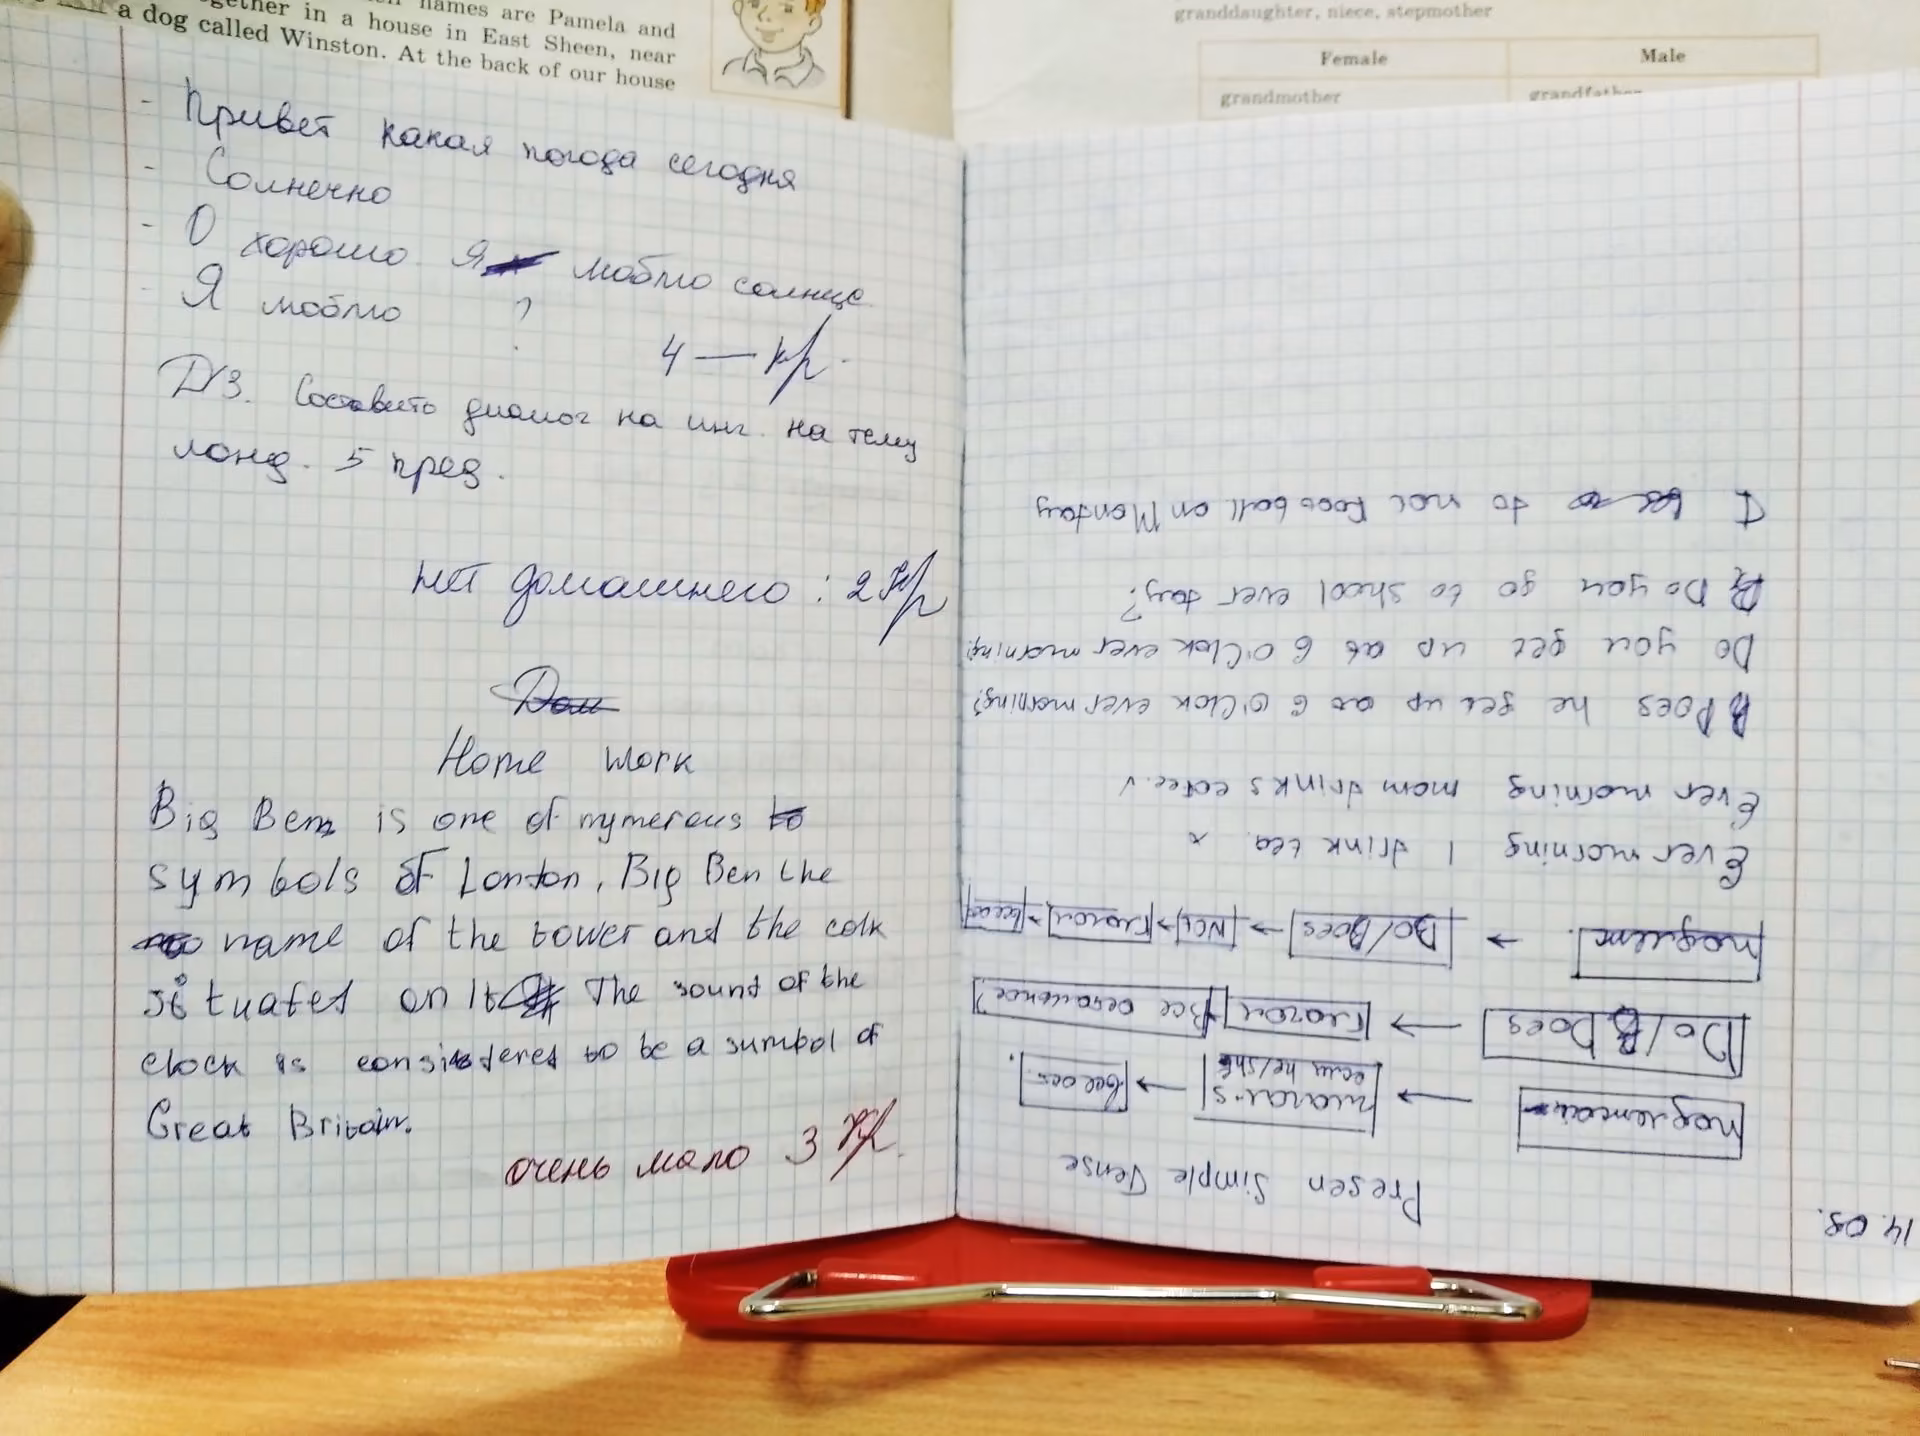 names are Pamela and
together in a house in East Sheen, near
a dog called Winston. At the back of our house
granddaughter, niece, stepmother
Female Male
grandmother grandfather
- Привет какая погода сегодня
- Солнечно
- О хорошо. Я люблю солнце
- Я люблю ?
4 — кр.
Д/З. Составить диалог на инг. на тему
лонд. 5 пред.
нет домашнего : 2 Кр
Дом
Home work
Big Ben is one of nymerous to
symbols of London, Big Ben the
name of the tower and the colk
situated on It The sound of the
clock is considered to be a sumbol of
Great Britain.
очень мало 3 Кр.
14.09.
Presen Simple Tense
подлежащ → глагол.s если he/she → все ост.
Do/Does → глагол → Все остальное?
подлеж. → Do/Does → Not → глагол → все ост
Ever morning I drink tea. x
Ever morning mom drinks cofee. v
Does he get up at 6 O'Clok ever morning?
Do you get up at 6 O'Clok ever morning?
Do you go to shcool ever day?
I do not Football on Monday